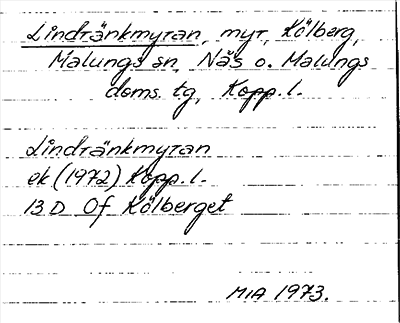 Lindtänkmyran, myr, Kölberg,
Malungs sn, Näs o. Malungs
doms. tg, Kopp. l.
Lindtänkmyran
ek (1972) Kopp. l.
13 D Of Kölberget
MIA 1973.